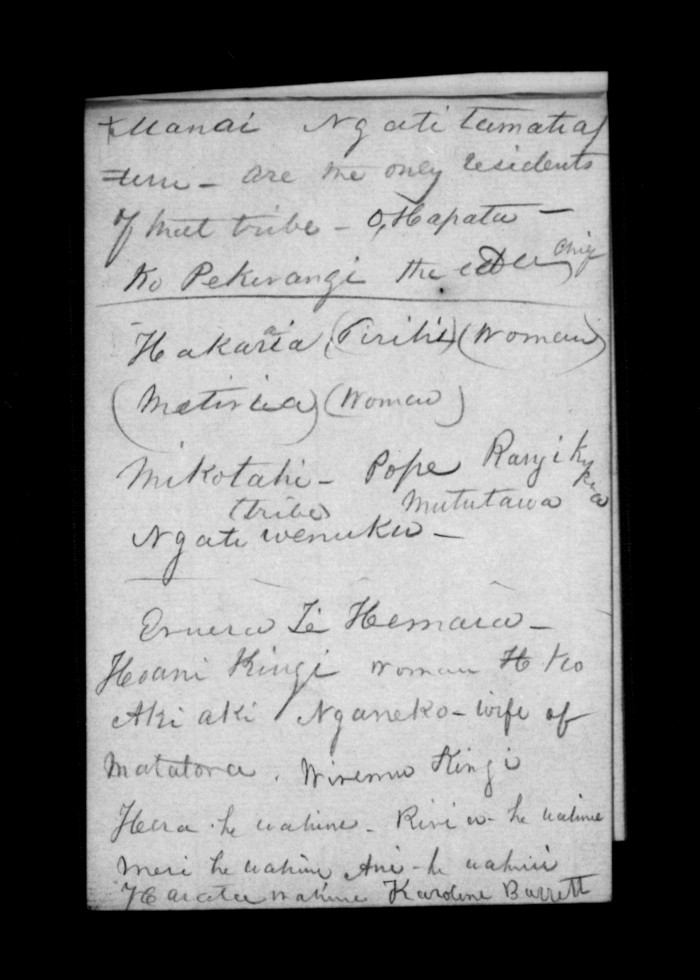 Manai Ngati tamatea
are the only residents
of that tribe - O, Hapata -
Ko Pekerangi the chief
Hakaraia (Pirihi) (Woman)
(Woman)
Mikotahi - Pope Rangi
(tribe) Mututawa
Ngati wenuku -
Eruera Te Hemara -
Hoani Kingi woman H
Aki aki Nganeko - wife of
Matatora . Wiremu Kingi
Hera - he wahine - Riria - he wahine
Meri he wahine Ani - he wahine
Harata wahine Karoline Barrett